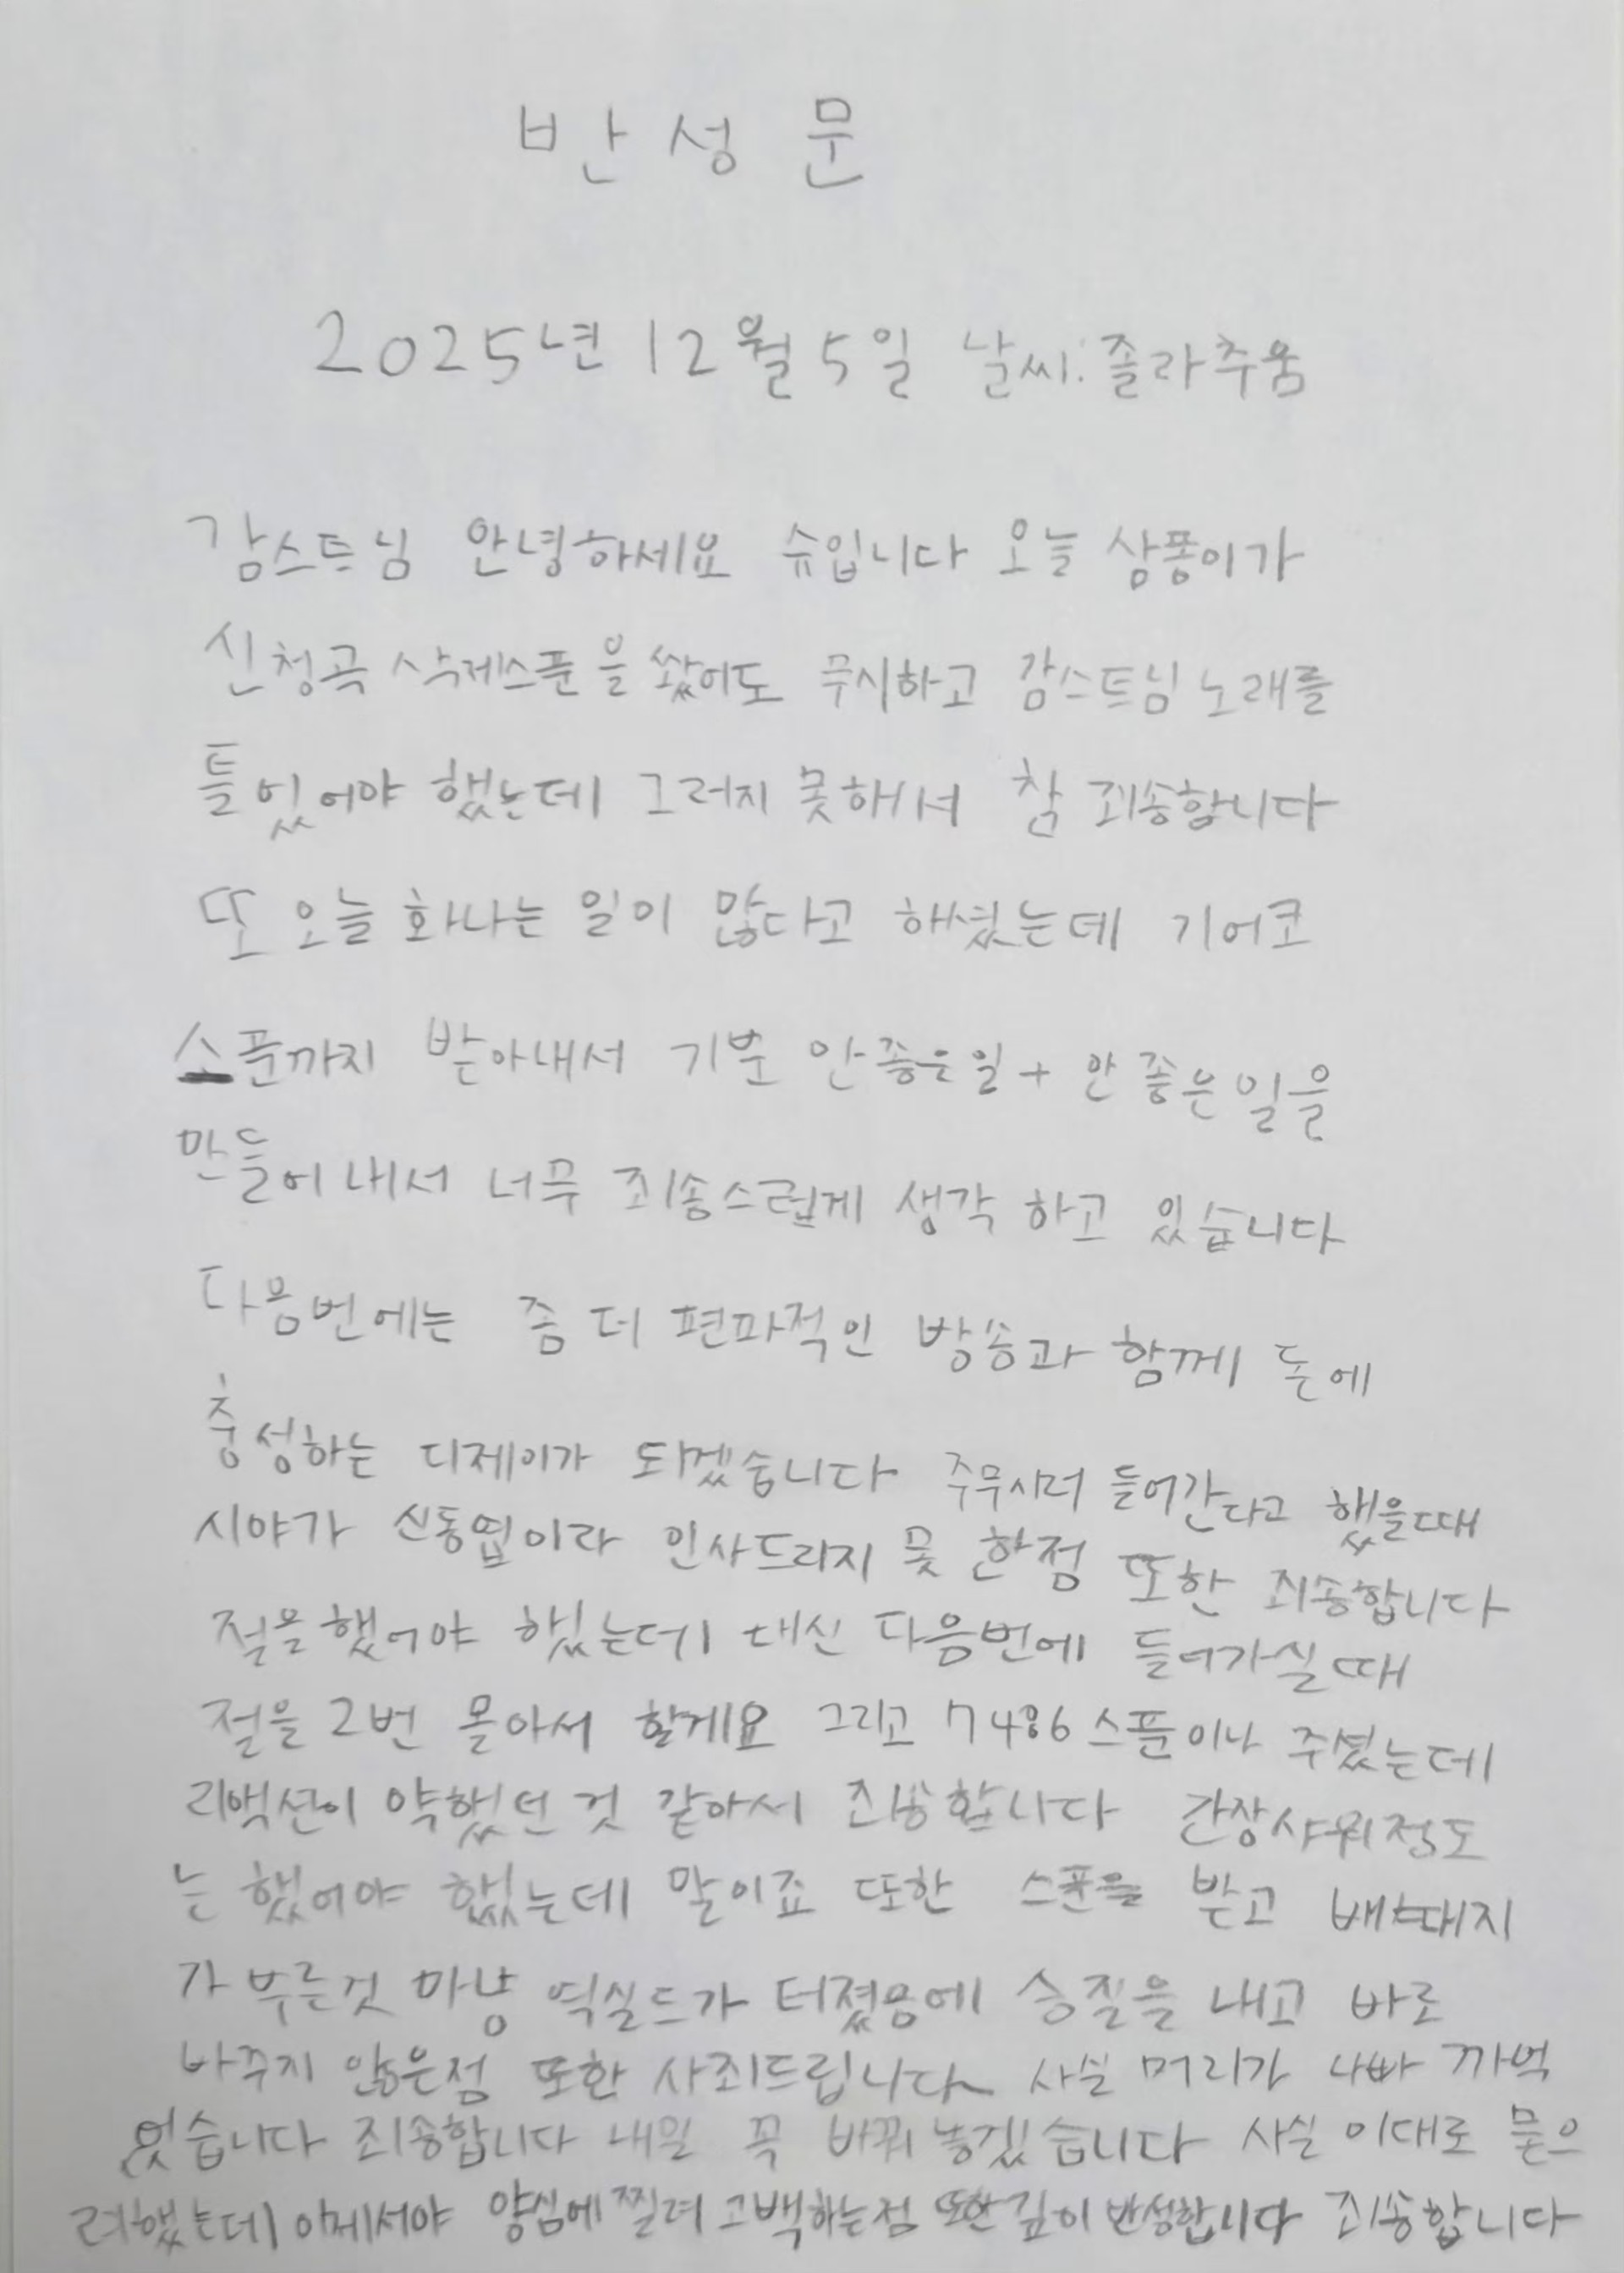 반성문
2025년 12월 5일 날씨: 졸라추움
감스트님 안녕하세요 슈입니다 오늘 삼퐁이가
신청곡 삭제스푼을 쐈어도 무시하고 감스트님 노래를
틀었어야 했는데 그러지 못해서 참 죄송합니다
또 오늘 화나는 일이 많다고 해셨는데 기어코
스푼까지 받아내서 기분 안좋은일 + 안좋은일을
만들어내서 너무 죄송스럽게 생각 하고 있습니다
다음번에는 좀 더 편파적인 방송과 함께 돈에
충성하는 디제이가 되겠습니다 주무시러 들어간다고 했을때
시야가 신동엽이라 인사드리지 못 한점 또한 죄송합니다
절을했어야 했는데 대신 다음번에 들어가실때
절을 2번 몰아서 할게요 그리고 7486스푼이나 주셨는데
리액션이 약했던 것 같아서 죄송합니다 간장샤워정도
는 했어야 했는데 말이죠 또한 스푼을 받고 배때지
가 부른것 마냥 역실드가 터졌음에 승질을 내고 바로
바꾸지 않은점 또한 사죄드립니다 사실 머리가 나빠 까먹
었습니다 죄송합니다 내일 꼭 바꿔놓겠습니다 사실 이대로 묻으
려했는데 이제서야 양심에 찔려 고백하는점 또한 깊이 반성합니다 죄송합니다